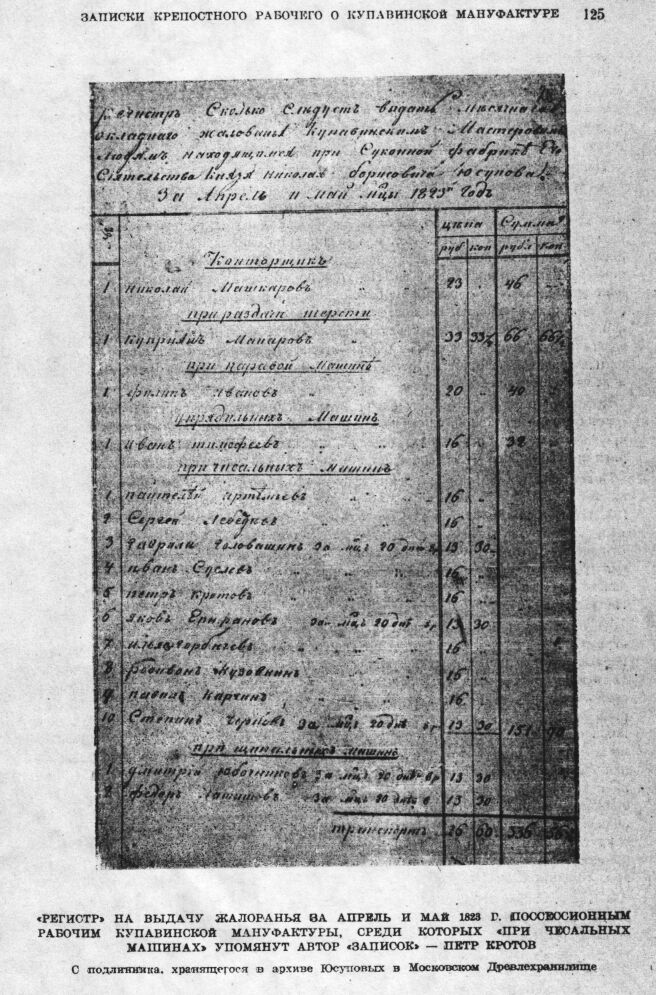 ЗАПИСКИ КРЕПОСТНОГО РАБОЧЕГО О КУПАВИНСКОЙ МАНУФАКТУРЕ 125
Регистръ Сколько Следуетъ видать Месячнаго
окладнаго жалованья Купавинскимъ Мастеровымъ
Людямъ находящимся при Суконной фабрике Его
Сіятельства Князя Николая борисовича Юсупова
За Апрель и май мцы 1823 годъ
цена Сумма
руб коп рубл коп
Конторщикъ
1 Николай Машкаровъ 23 46
при раздачи шерсти
1 33 33 66 66
при паровой Машинѣ
1 филипъ Ивановъ 20 40
Машинъ
1 иванъ тимофеевъ 16 32
при чисальныхъ Машинъ
1 артемьевъ 16
2 Сергей 16
3 гаврила Головашинъ за мцъ 20 дней 13 30
4 иванъ 16
5 петръ кротовъ 16
6 яковъ за мцъ 20 дне 13 30
7 16
8 16
9 16
10 Степанъ за мцъ 20 дне 13 30 151
при щипальныхъ машинъ
1 дмитрій работниковъ за мцъ 20 дне 13 30
2 федоръ за мцъ 20 дне 13 30
транспортъ 26 60 336
«РЕГИСТР» НА ВЫДАЧУ ЖАЛОРАНЬЯ ЗА АПРЕЛЬ И МАЙ 1823 Г. ПОССЕСИОННЫМ
РАБОЧИМ КУПАВИНСКОЙ МАНУФАКТУРЫ, СРЕДИ КОТОРЫХ «ПРИ ЧЕСАЛЬНЫХ
МАШИНАХ» УПОМЯНУТ АВТОР «ЗАПИСОК» — ПЕТР КРОТОВ
С подлинника, хранящегося в архиве Юсуповых в Московском Древлехранилище